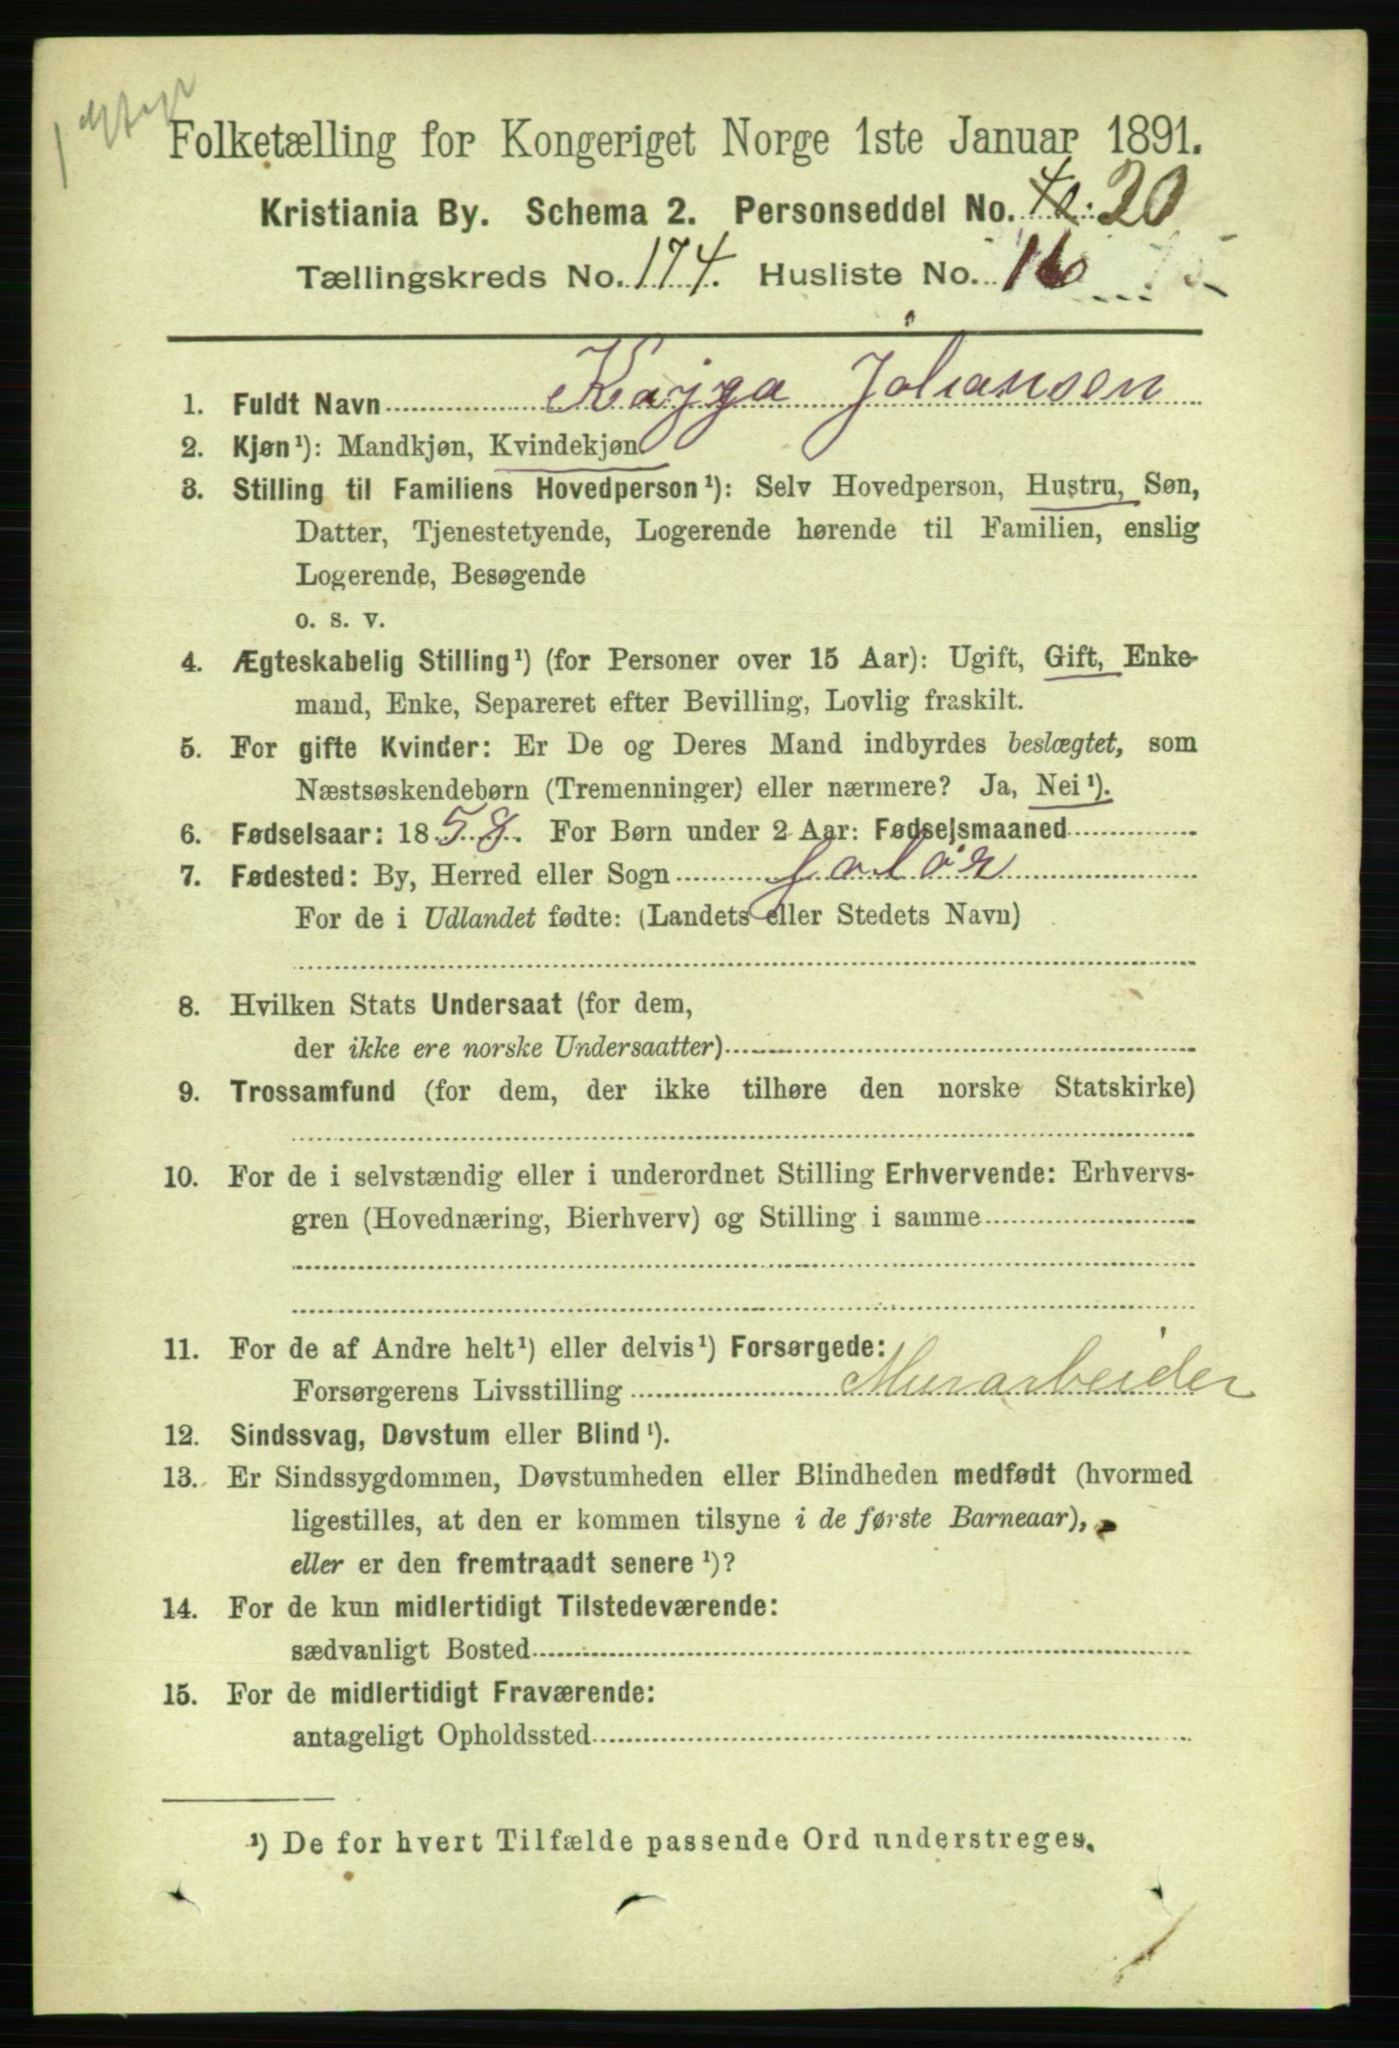 Folketælling for Kongeriget Norge 1ste Januar 1891.
Kristiania By. Schema 2. Personseddel No. 20
Tællingskreds No. 174. Husliste No. 16
1. Fuldt Navn Kajga Johansen
2. Kjøn¹): Mandkjøn, Kvindekjøn
3. Stilling til Familiens Hovedperson¹): Selv Hovedperson, Hustru, Søn,
Datter, Tjenestetyende, Logerende hørende til Familien, enslig
Logerende, Besøgende
o. s. v.
4. Ægteskabelig Stilling¹) (for Personer over 15 Aar): Ugift, Gift, Enke-
mand, Enke, Separeret efter Bevilling, Lovlig fraskilt.
5. For gifte Kvinder: Er De og Deres Mand indbyrdes beslægtet, som
Næstsøskendebørn (Tremenninger) eller nærmere? Ja, Nei¹).
6. Fødselsaar: 1858. For Børn under 2 Aar: Fødselsmaaned
7. Fødested: By, Herred eller Sogn Solör
For de i Udlandet fødte: (Landets eller Stedets Navn)
8. Hvilken Stats Undersaat (for dem,
der ikke ere norske Undersaatter)
9. Trossamfund (for dem, der ikke tilhøre den norske Statskirke)
10. For de i selvstændig eller i underordnet Stilling Erhvervende: Erhvervs-
gren (Hovednæring, Bierhverv) og Stilling i samme
11. For de af Andre helt¹) eller delvis¹) Forsørgede:
Forsørgerens Livsstilling Murarbeider
12. Sindssvag, Døvstum eller Blind¹).
13. Er Sindssygdommen, Døvstumheden eller Blindheden medfødt (hvormed
ligestilles, at den er kommen tilsyne i de første Barneaar),
eller er den fremtraadt senere¹)?
14. For de kun midlertidigt Tilstedeværende:
sædvanligt Bosted
15. For de midlertidigt Fraværende:
antageligt Opholdssted
¹) De for hvert Tilfælde passende Ord understreges.